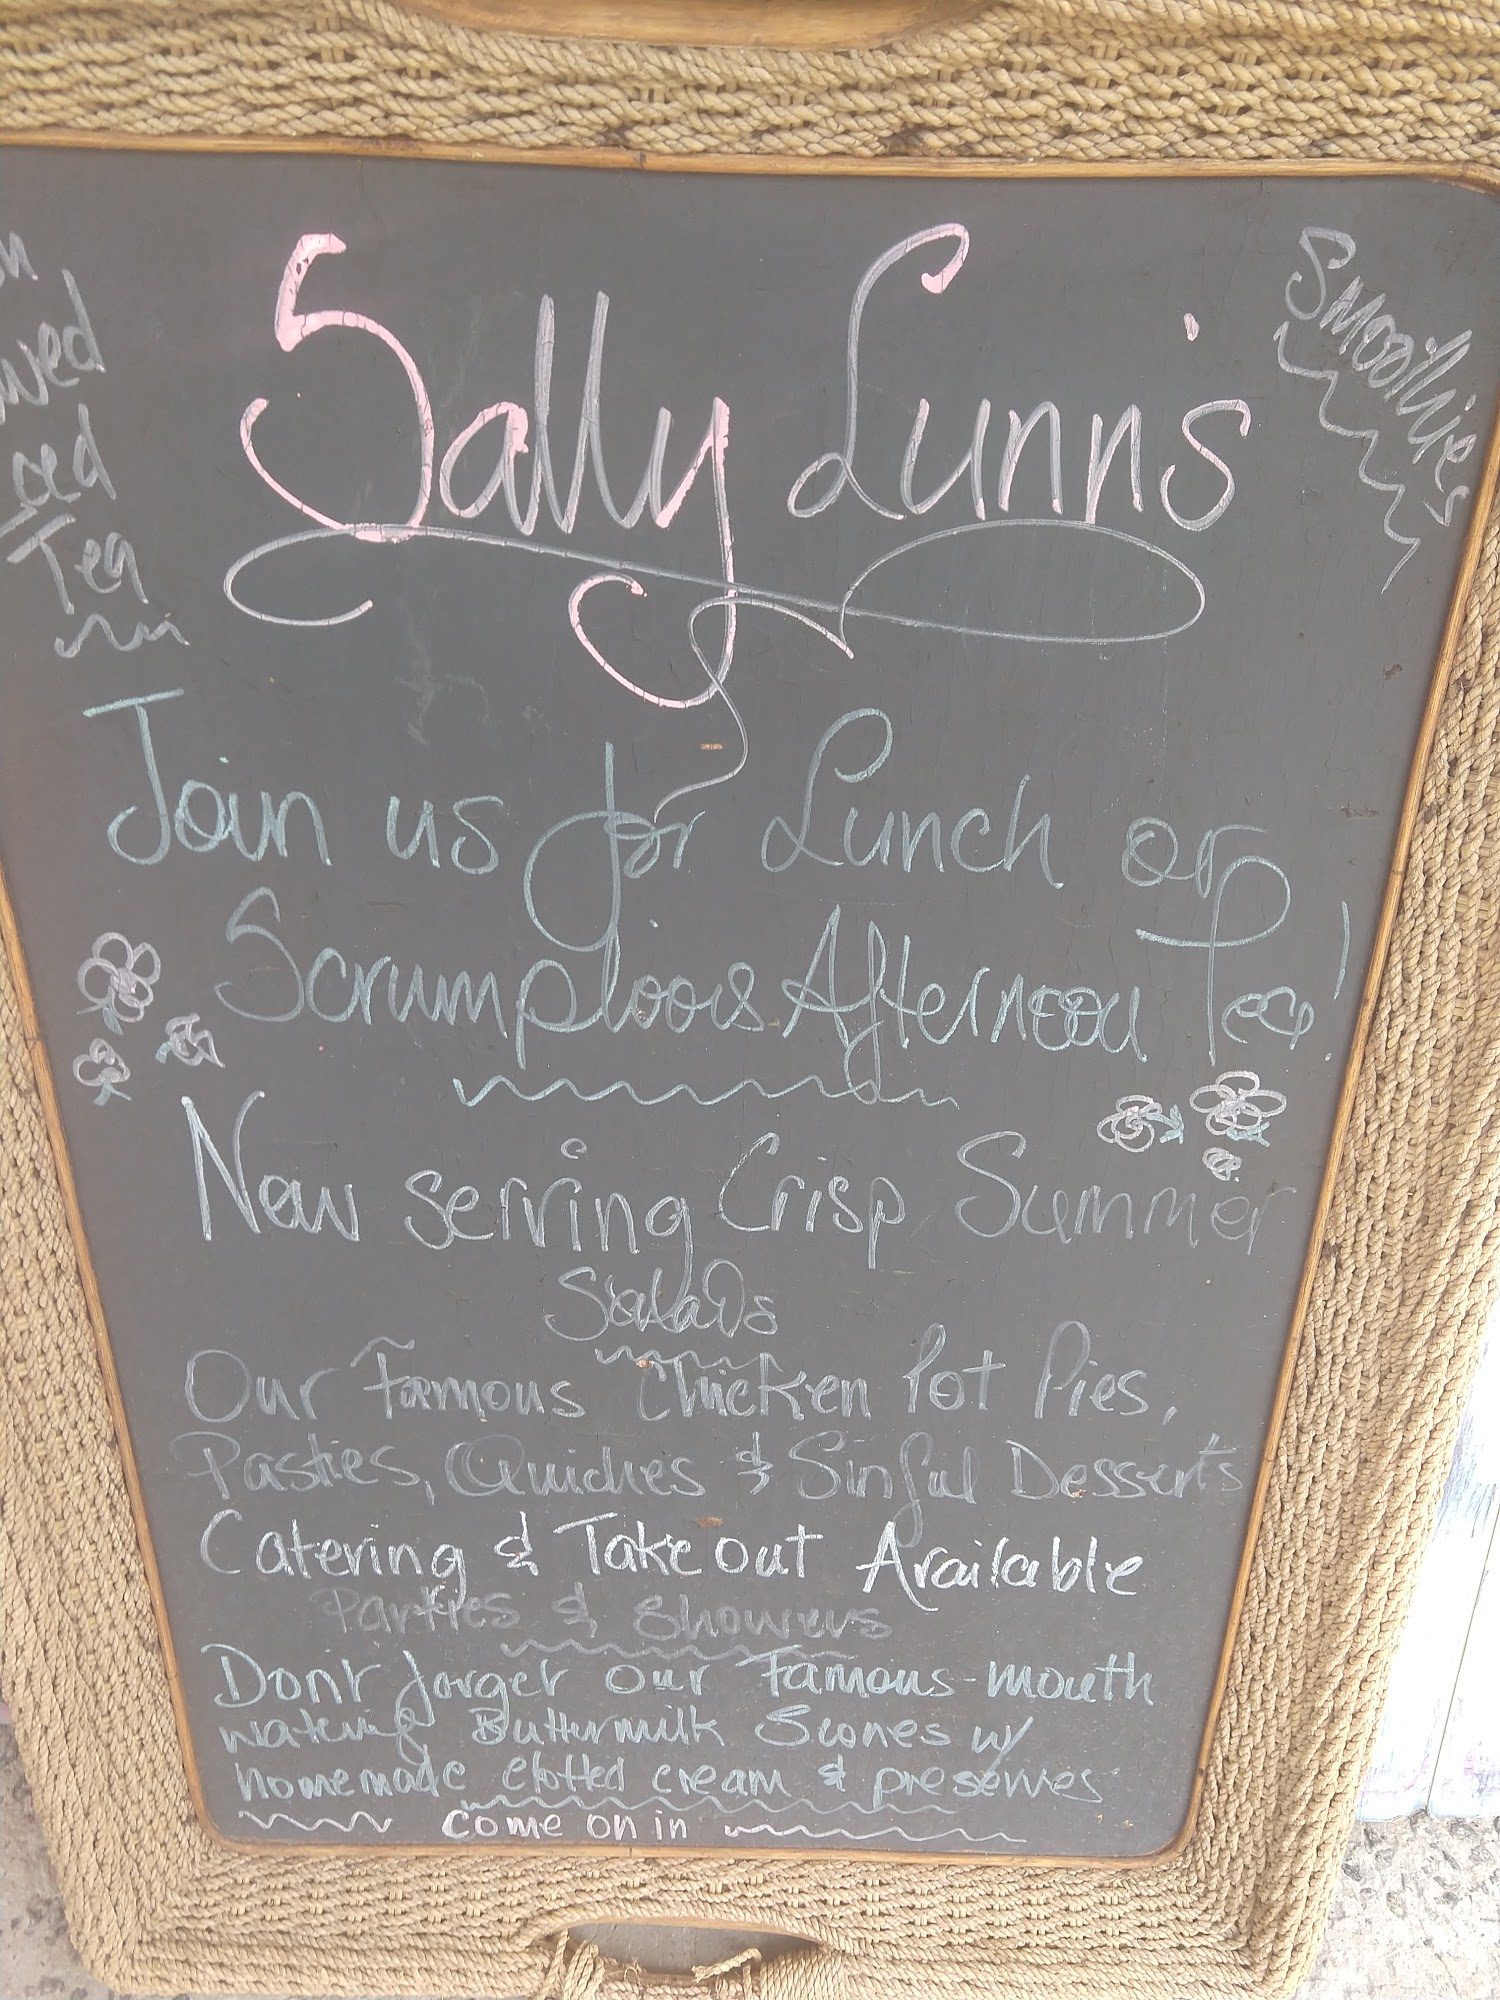 Sally Lunn's
Smoothies
Iced
Tea
Join us for Lunch or
Scrumptious Afternoon Tea!
Now serving Crisp Summer
Salads
Our Famous Chicken Pot Pies,
Pasties, Quiches & Sinful Desserts
Catering & Take out Available
Parties & Showers
Don't forget our Famous-mouth
watering Buttermilk Scones w/
homemade clotted cream & preserves
come on in